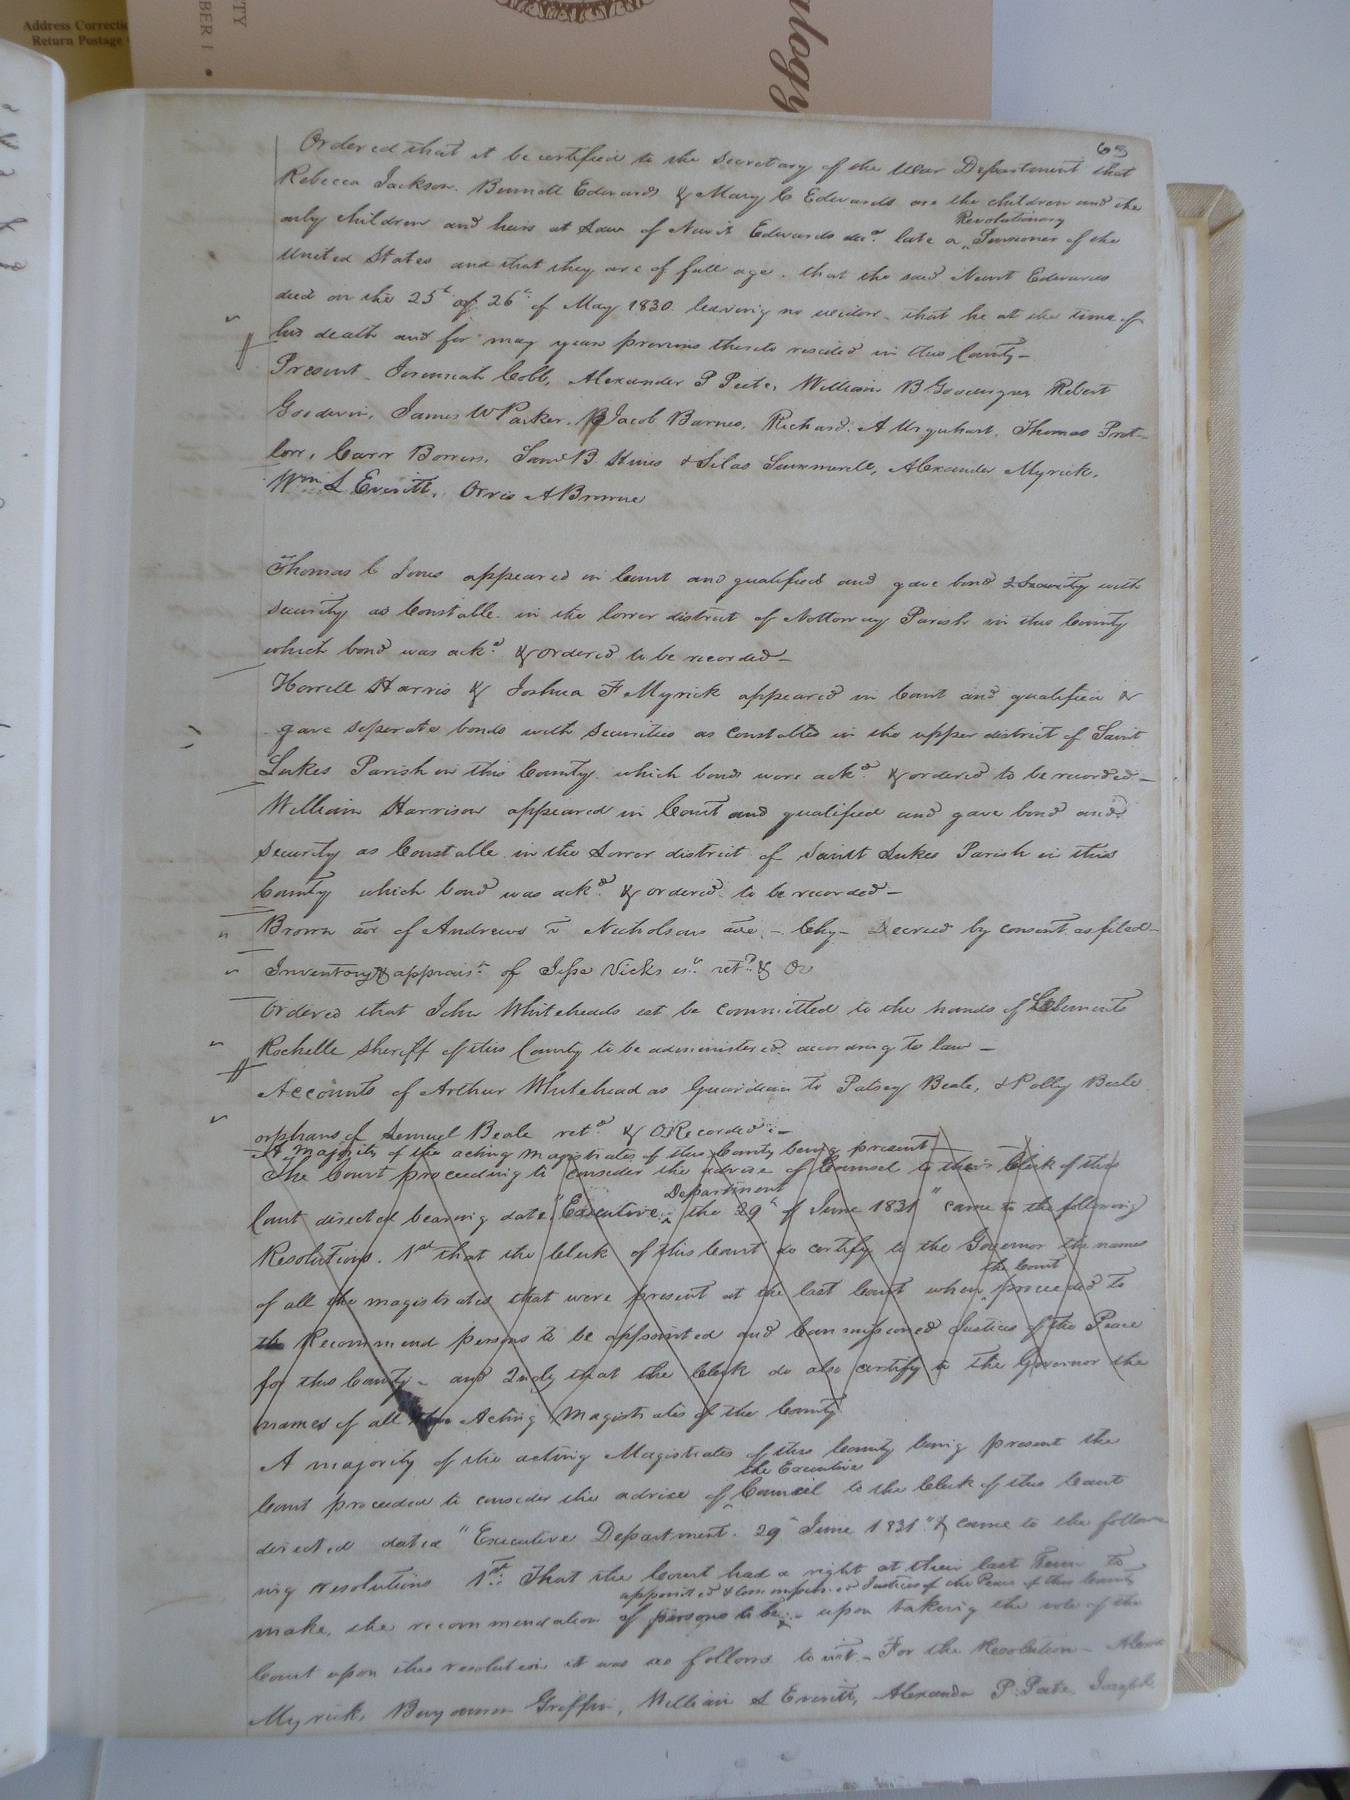 Address Correctio
Return Postage
TY
BER I •
alogy
63
Ordered that it be certified to the Secretary of the War Department that
Rebecca Jackson. Bennett Edwards & Mary C Edwards are the children and the
only children and heirs at Law of Newit Edwards decd. late a Revolutionary Pensioner of the
United States and that they are of full age. that the said Newit Edwards
died on the 25th or 26th of May 1830 leaving no widow. that he at the time of
his death and for may years previous thereto resided in this County—
Present Jeremiah Cobb, Alexander P Peete, William B Goodwyn Robert
Goodwin, James W Parker, Jacob Barnes, Richard A Urquhart, Thomas Pret-
low, Carr Bowers, Saml B Hines & Silas Summerell, Alexander Myrick,
Wm L Everitt, Orris A Browne
Thomas C Jones appeared in Court and qualified and gave bond & Security with
security as Constable in the lower district of Nottoway Parish in this County
which bond was ackd. & ordered to be recorded—
Howell Harris & Joshua F Myrick appeared in Court and qualified &
gave seperate bonds with securities as constables in the upper district of Saint
Lukes Parish in this County which bonds were ackd & ordered to be recorded—
William Harrison appeared in Court and qualified and gave bond and
security as Constable in the Lower district of Saint Lukes Parish in this
County which bond was ackd & ordered to be recorded—
Brown of Andrews v Nicholsons — Chy— Decreed by consent as filed—
Inventory & appraist of Jesse Vicks retd & Or
Ordered that John Whiteheads est be committed to the hands of Clements
Rochelle Sheriff of this County to be administered according to law—
Accounts of Arthur Whitehead as Guardian to Patsey Beale, & Polly Beale
orphans of Lemuel Beale retd & ORecorded—
A majority of the acting magistrates of this County being present
The Court proceeding to consider the advise of Counsel to their Clerk of this
Court directed bearing date "Executive Department the 29th of June 1831" came to the following
Resolutions. 1st that the Clerk of this Court do certify to the Governor the names
of all the magistrates that were present at the last Court when the Court proceeded to
the Recommend persons to be appointed and Commissioned Justices of the Peace
for this County— and 2ndly that the Clerk do also certify to the Governor the
names of all the Acting Magistrates of the County
A majority of the acting Magistrates of this County being present the
Court proceeded to consider the advice of the Executive Council to the Clerk of this Court
directed dated "Executive Department. 29th June 1831" & came to the follow-
ing resolutions 1st: That the Court had a right at their last Term to
make, the recommendation of persons to be appointed & Commissioned Justices of the Peace of this County upon taking the vote of the
Court upon this resolution it was as follows to wit— For the Resolution— Alexr
Myrick, Benjamin Griffin, William L Everitt, Alexander P. Peete Joseph